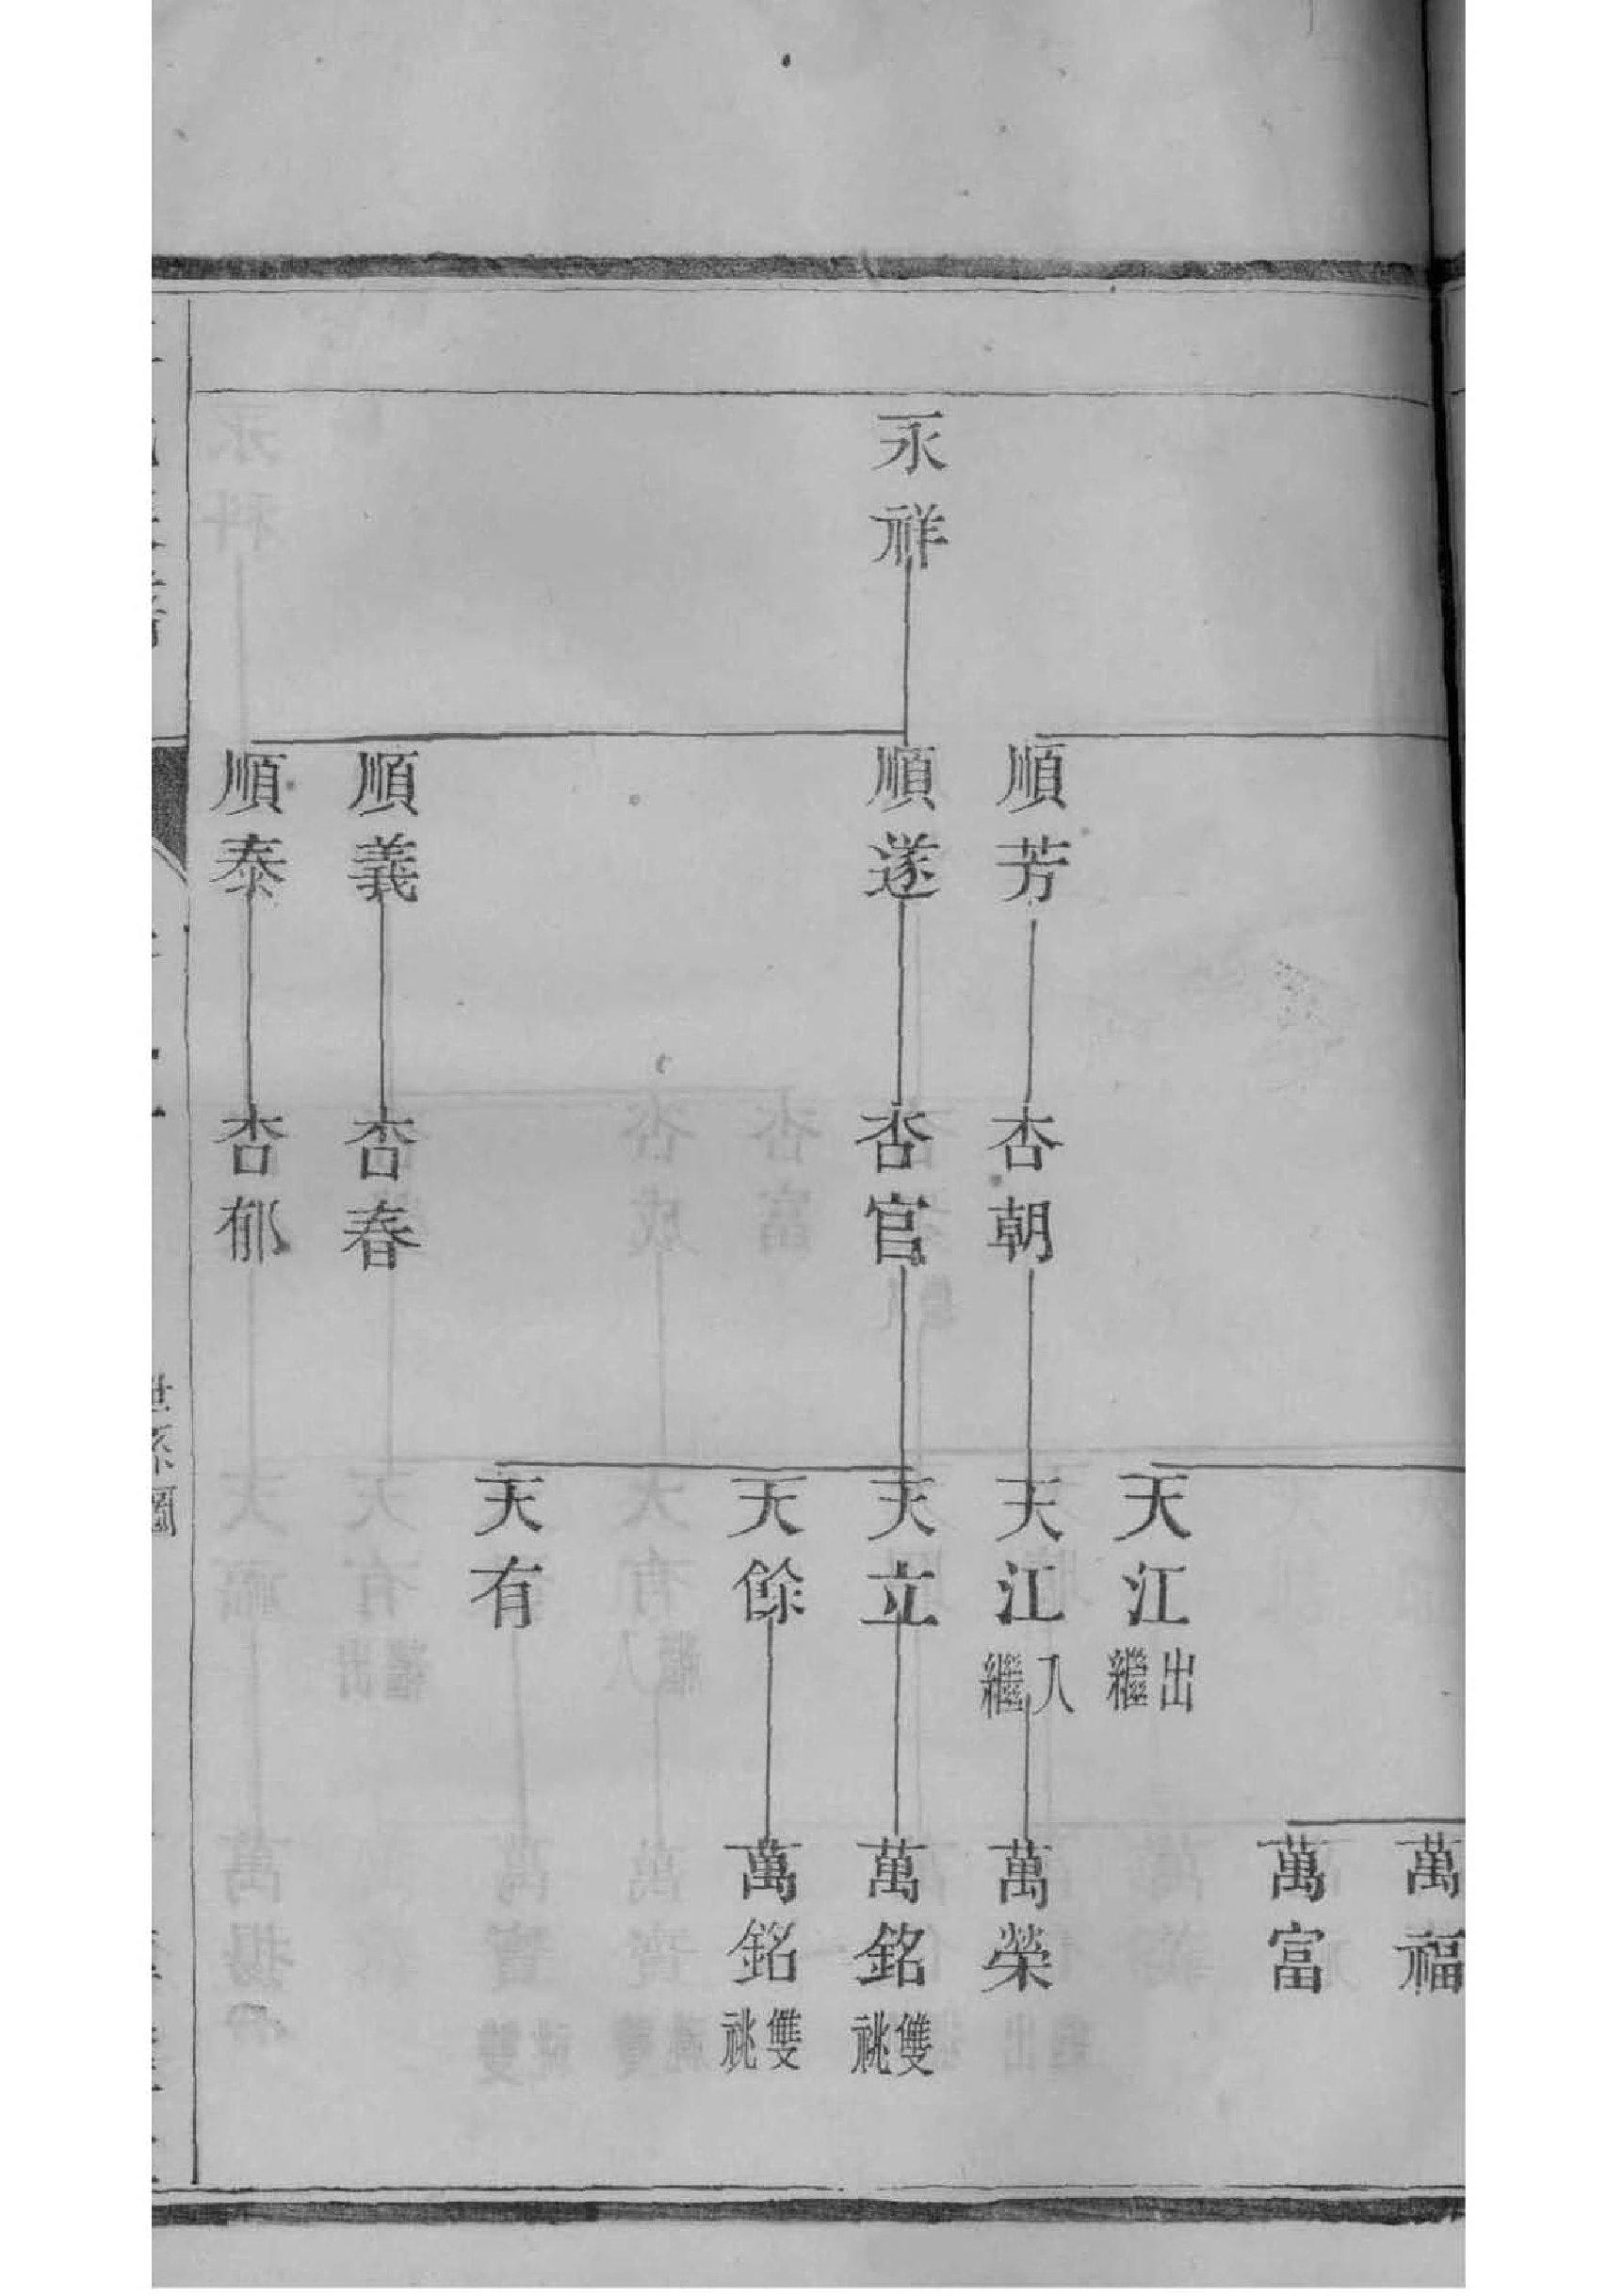 永祥
順芳
順遂
順義
順泰
杏朝
杏官
杏春
杏郁
天江出繼
天江入繼
天立
天餘
天有
萬福
萬富
萬榮
萬銘雙祧
萬銘雙祧
世系圖